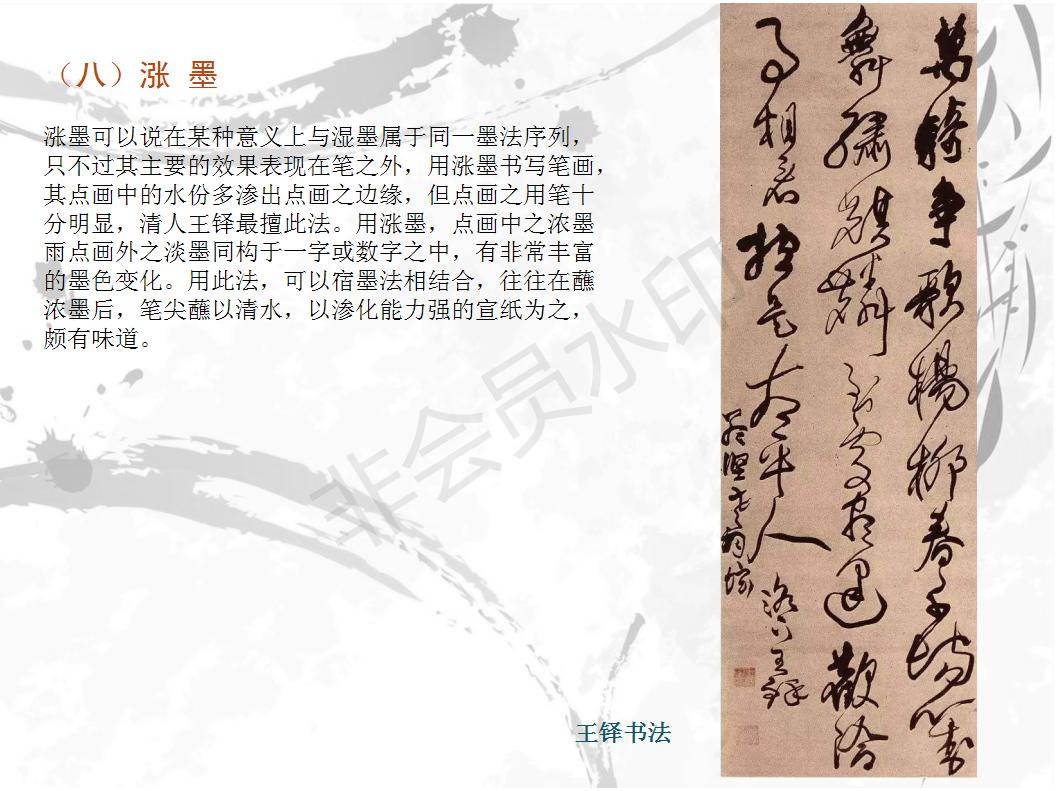 （八）涨 墨
涨墨可以说在某种意义上与湿墨属于同一墨法序列，
只不过其主要的效果表现在笔之外，用涨墨书写笔画，
其点画中的水份多渗出点画之边缘，但点画之用笔十
分明显，清人王铎最擅此法。用涨墨，点画中之浓墨
雨点画外之淡墨同构于一字或数字之中，有非常丰富
的墨色变化。用此法，可以宿墨法相结合，往往在蘸
浓墨后，笔尖蘸以清水，以渗化能力强的宣纸为之，
颇有味道。
萬騎爭歌楊柳春千場對
舞繡騏驎到處盡逢歡洽
事相看總是太平人
洛下王鐸
王铎书法
非会员水印